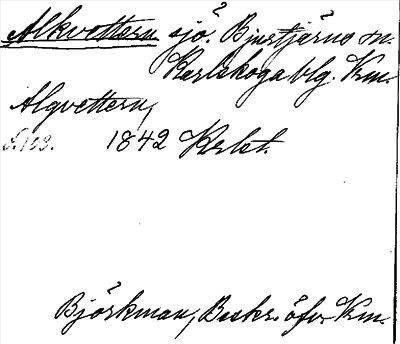 Alkvettern sjö. Bjurtjärns sn.
Karlskoga blg. Krm.
Algvettern,
S. 103. 1842 Krbet.
Björkman, Beskr. öfver Krm.